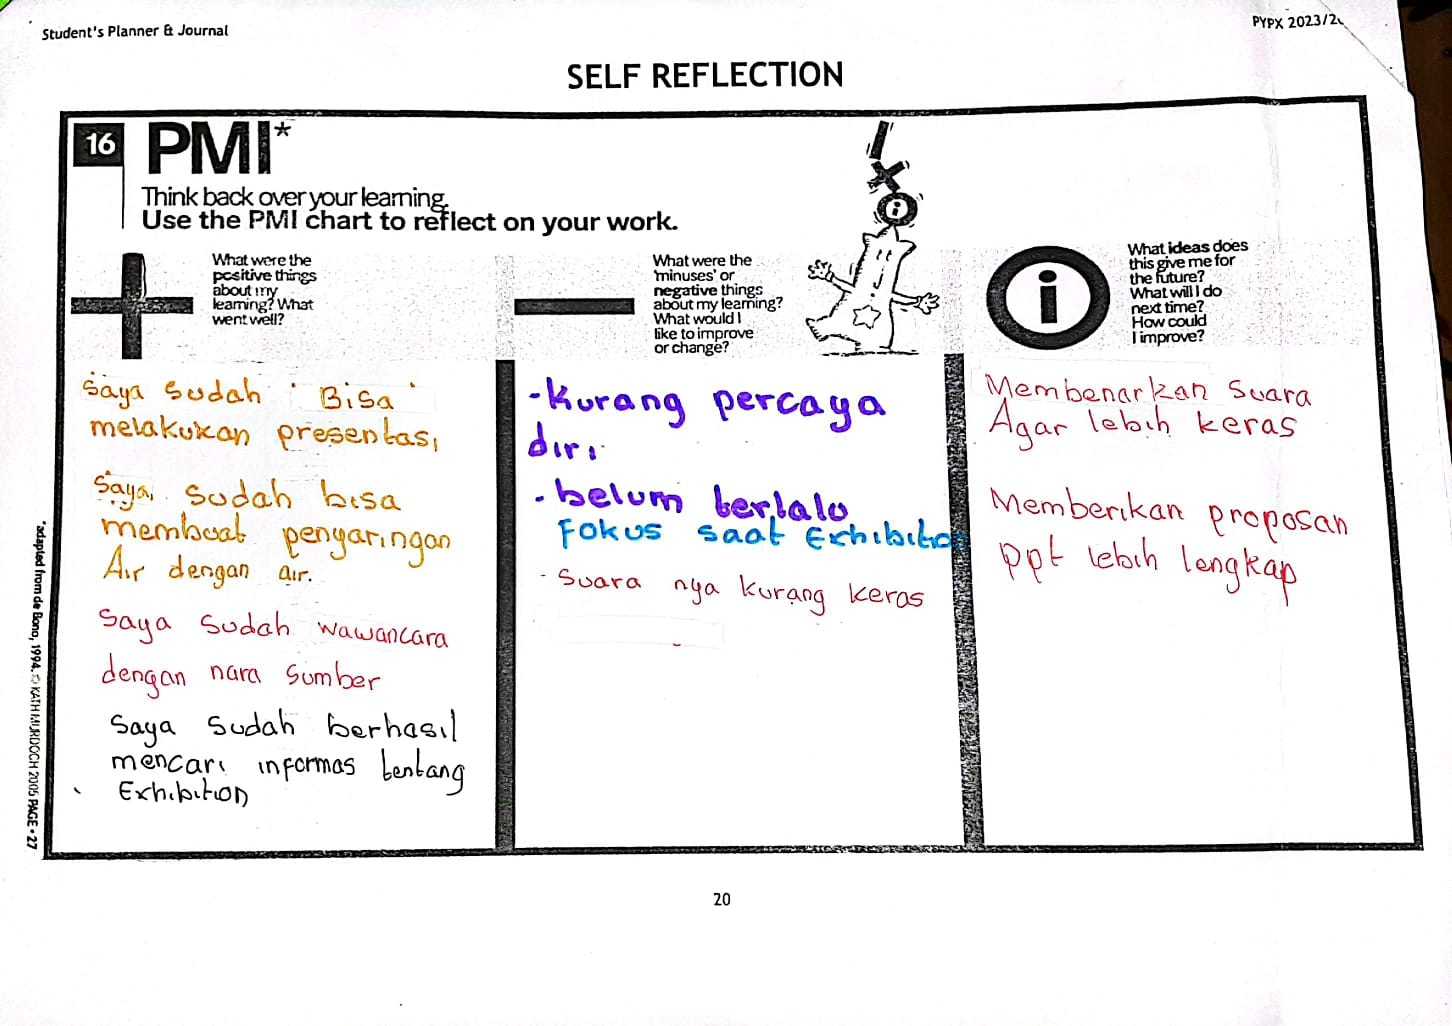 Student's Planner & Journal
PYPX 2023/2
SELF REFLECTION
16
PMI*
Think back over your learning.
Use the PMI chart to reflect on your work.
What were the
positive things
about my
learning? What
went well?
Saya sudah Bisa
melakukan presentasi
Saya sudah bisa
membuat penyaringan
Air dengan air.
Saya sudah wawancara
dengan nara sumber
Saya sudah berhasil
mencari informas tentang
Exhibition
What were the
'minuses' or
negative things
about my learning?
What would I
like to improve
or change?
-Kurang percaya
diri
- belum terlalu
Fokus saat Exhibition
- Suara nya kurang keras
i
What ideas does
this give me for
the future?
What will I do
next time?
How could
I improve?
Membenarkan Suara
Agar lebih keras
Memberikan proposan
ppt lebih lengkap
*adapted from de Bono, 1994. © KATH MURDOCH 2005 PAGE • 27
20